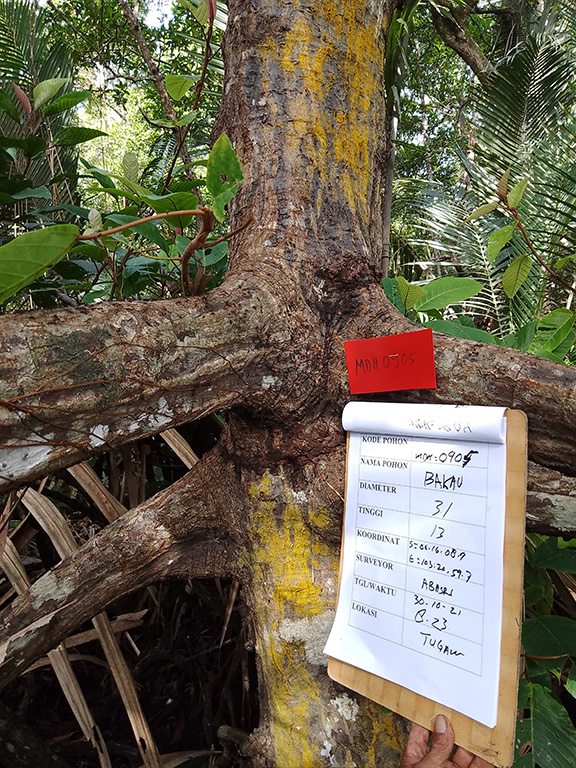 MDH 0905
KODE POHON MDH=0905
NAMA POHON BAKAU
DIAMETER 31
TINGGI 13
KOORDINAT S=06.16.08.9
E=103.20.59.7
SURVEYOR
TGL/WAKTU 30-10-21
8.23
LOKASI